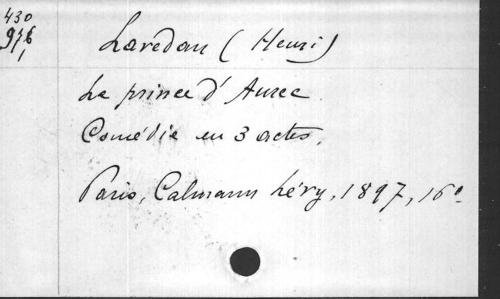 430
976
Lavedan (Henri)
Le prince d'Aurec
Comédie en 3 actes.
Paris, Calmann Lévy, 1897, 16º